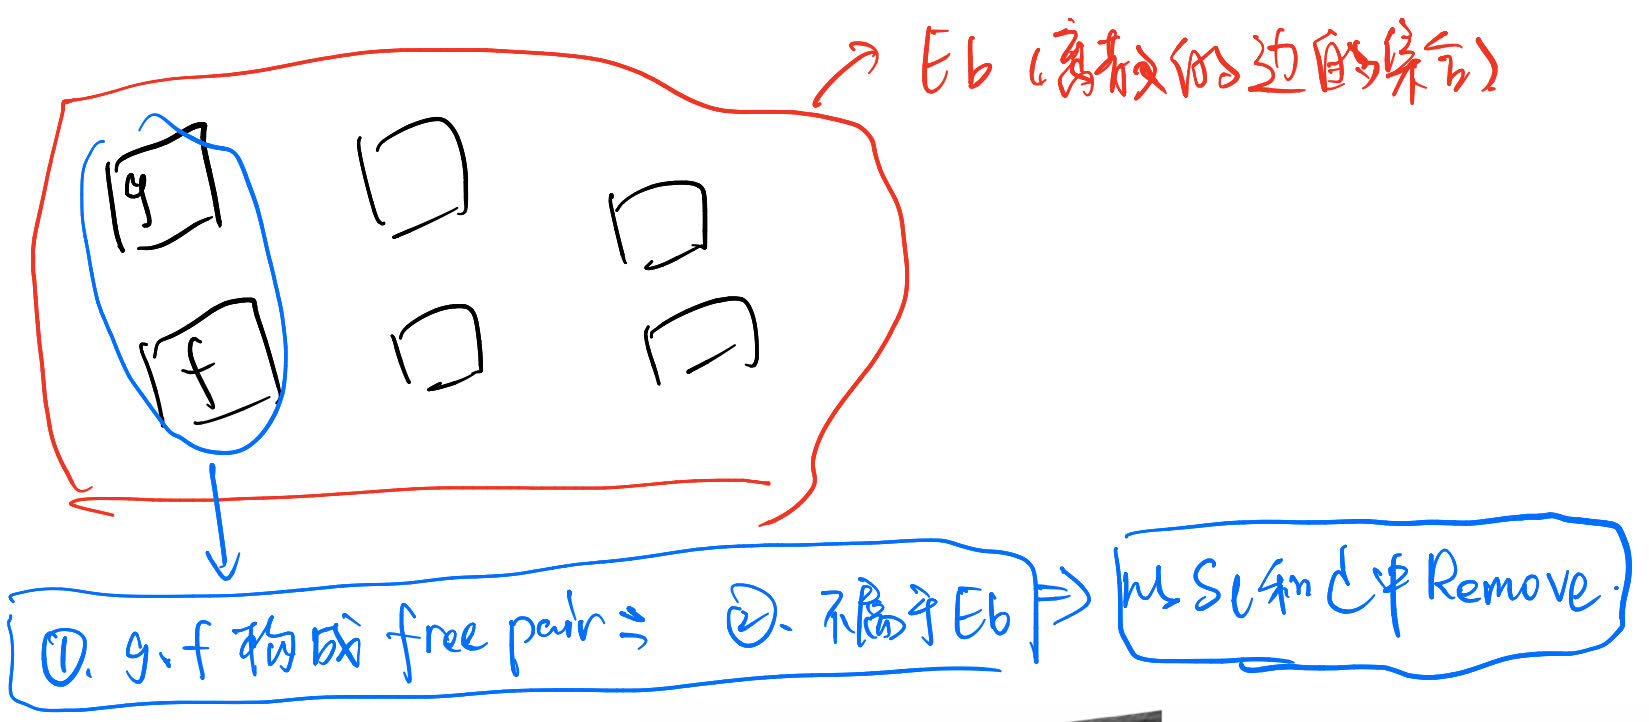 Eb (离散的边的集合)
g
f
①. g、f 构成 free pair; ②、不属于Eb
从 Sl 和 C 中 Remove.